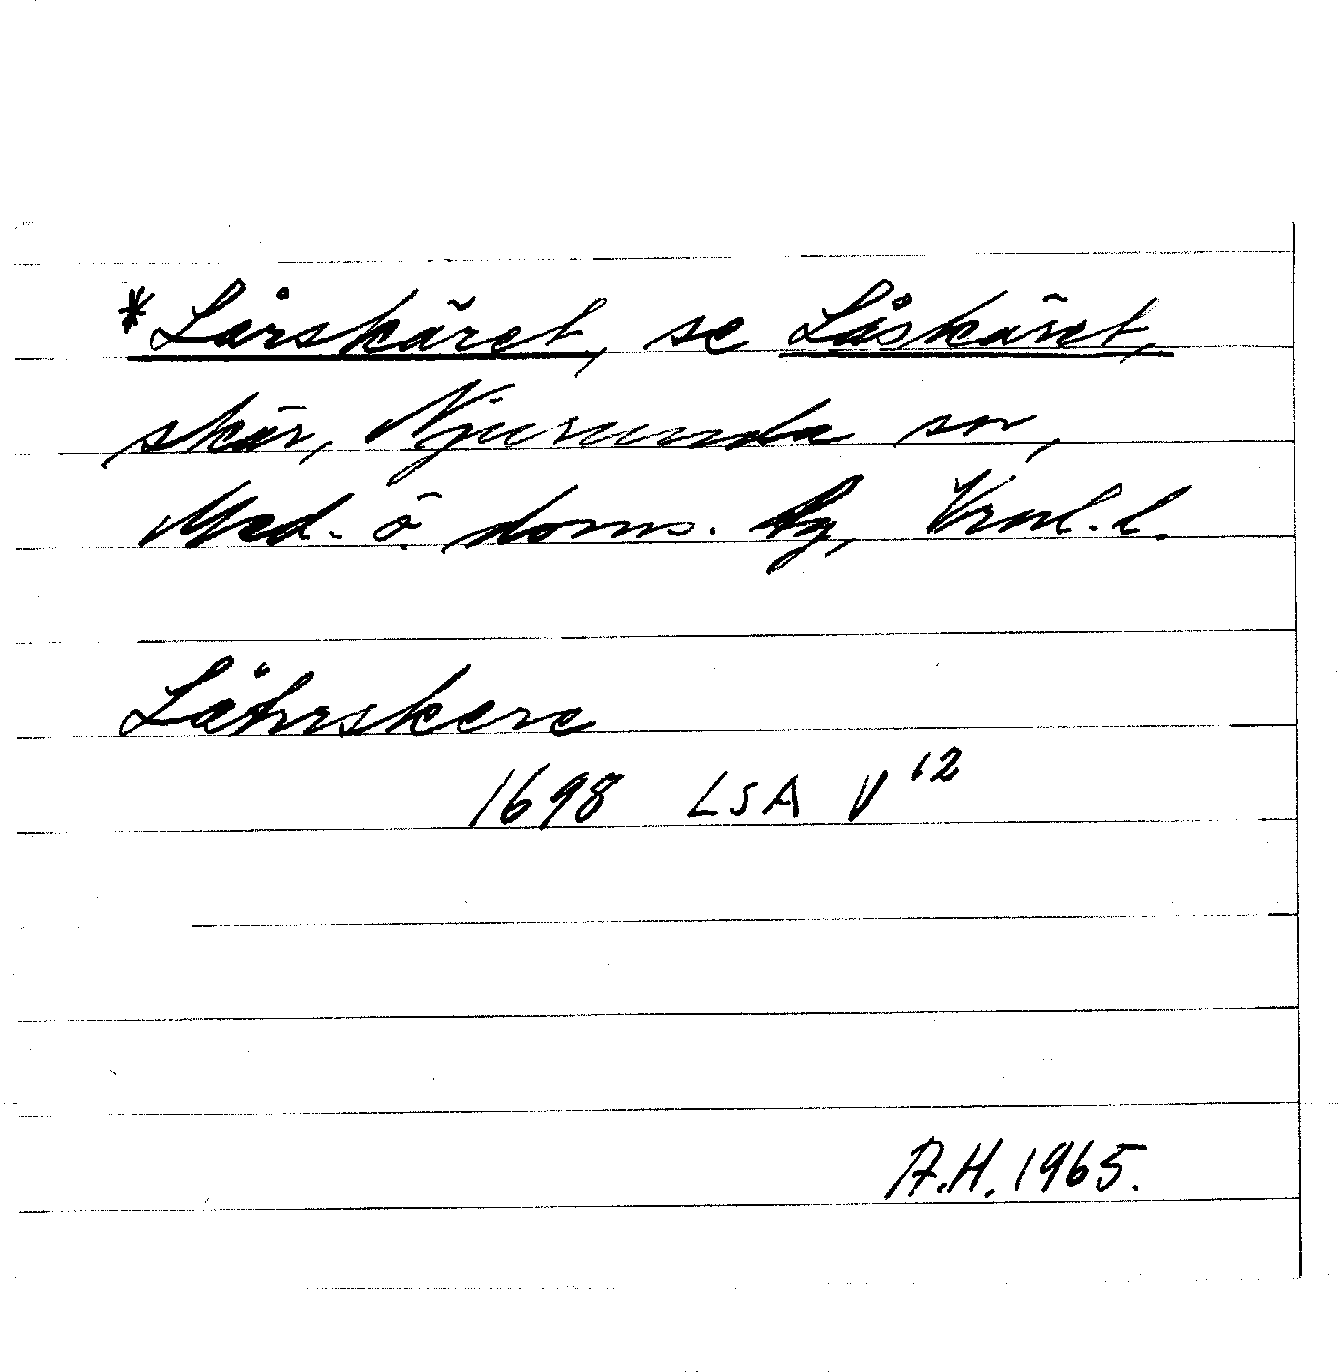 *Lårskäret, se Låskäret,
skär, Njurunda sn,
Med. ö. doms. lg, Vnrl. l.
Låhrskere
1698 LSA V 12
A.H. 1965.